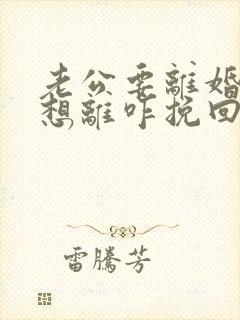 老公要離婚
想離咋挽回
雷騰芳